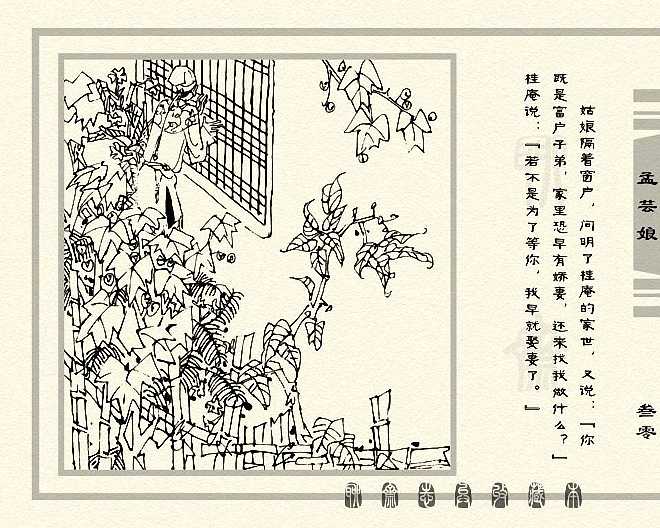 姑娘隔着窗户，问明了桂庵的家世，又说：『你
既是富户子弟，家里恐早有娇妻，还来找我做什么？』
桂庵说：『若不是为了等你，我早就娶妻了。』
孟芸娘
叁零